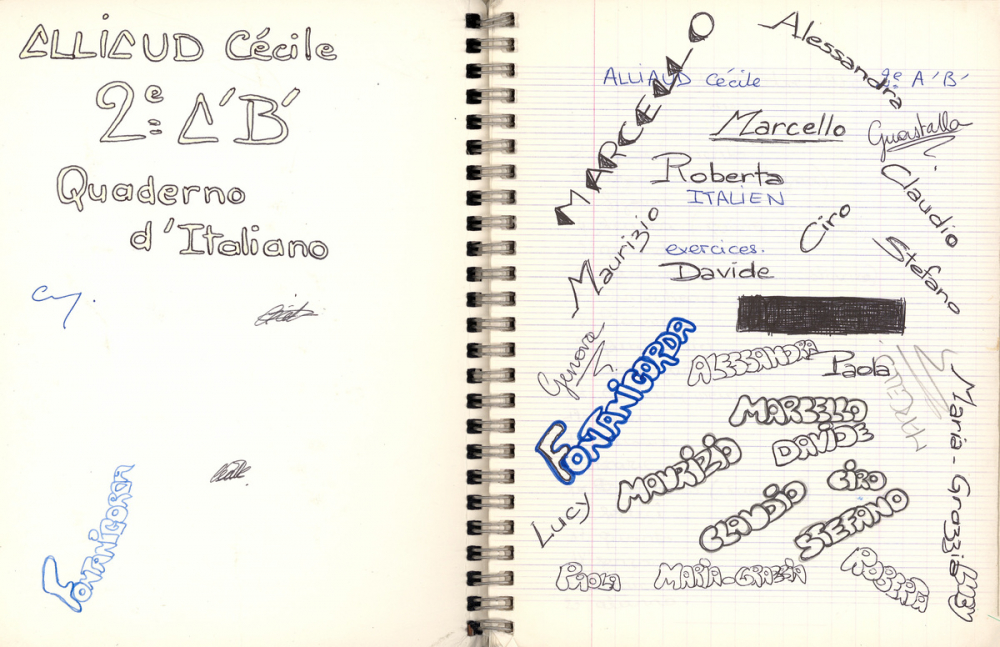 ALLIAUD Cécile
2e A'B'
Quaderno
d'Italiano
FONTANIGORDA
MARCELLO
Alessandra
ALLIAUD Cécile 2e A'B'
Marcello
Guastalla
Roberta
Claudio
ITALIEN
Maurizio
Ciro
exercices.
Stefano
Davide
Genova
FONTANIGORDA
ALESSANDRA
Paola
MARCELLO
MARCELLO
DAVIDE
MAURIZIO
CIRO
Maria-Grazzia
Lucy
CLAUDIO
STEFANO
PAOLA
MARIA-GRAZZIA
ROBERTA
LUCY